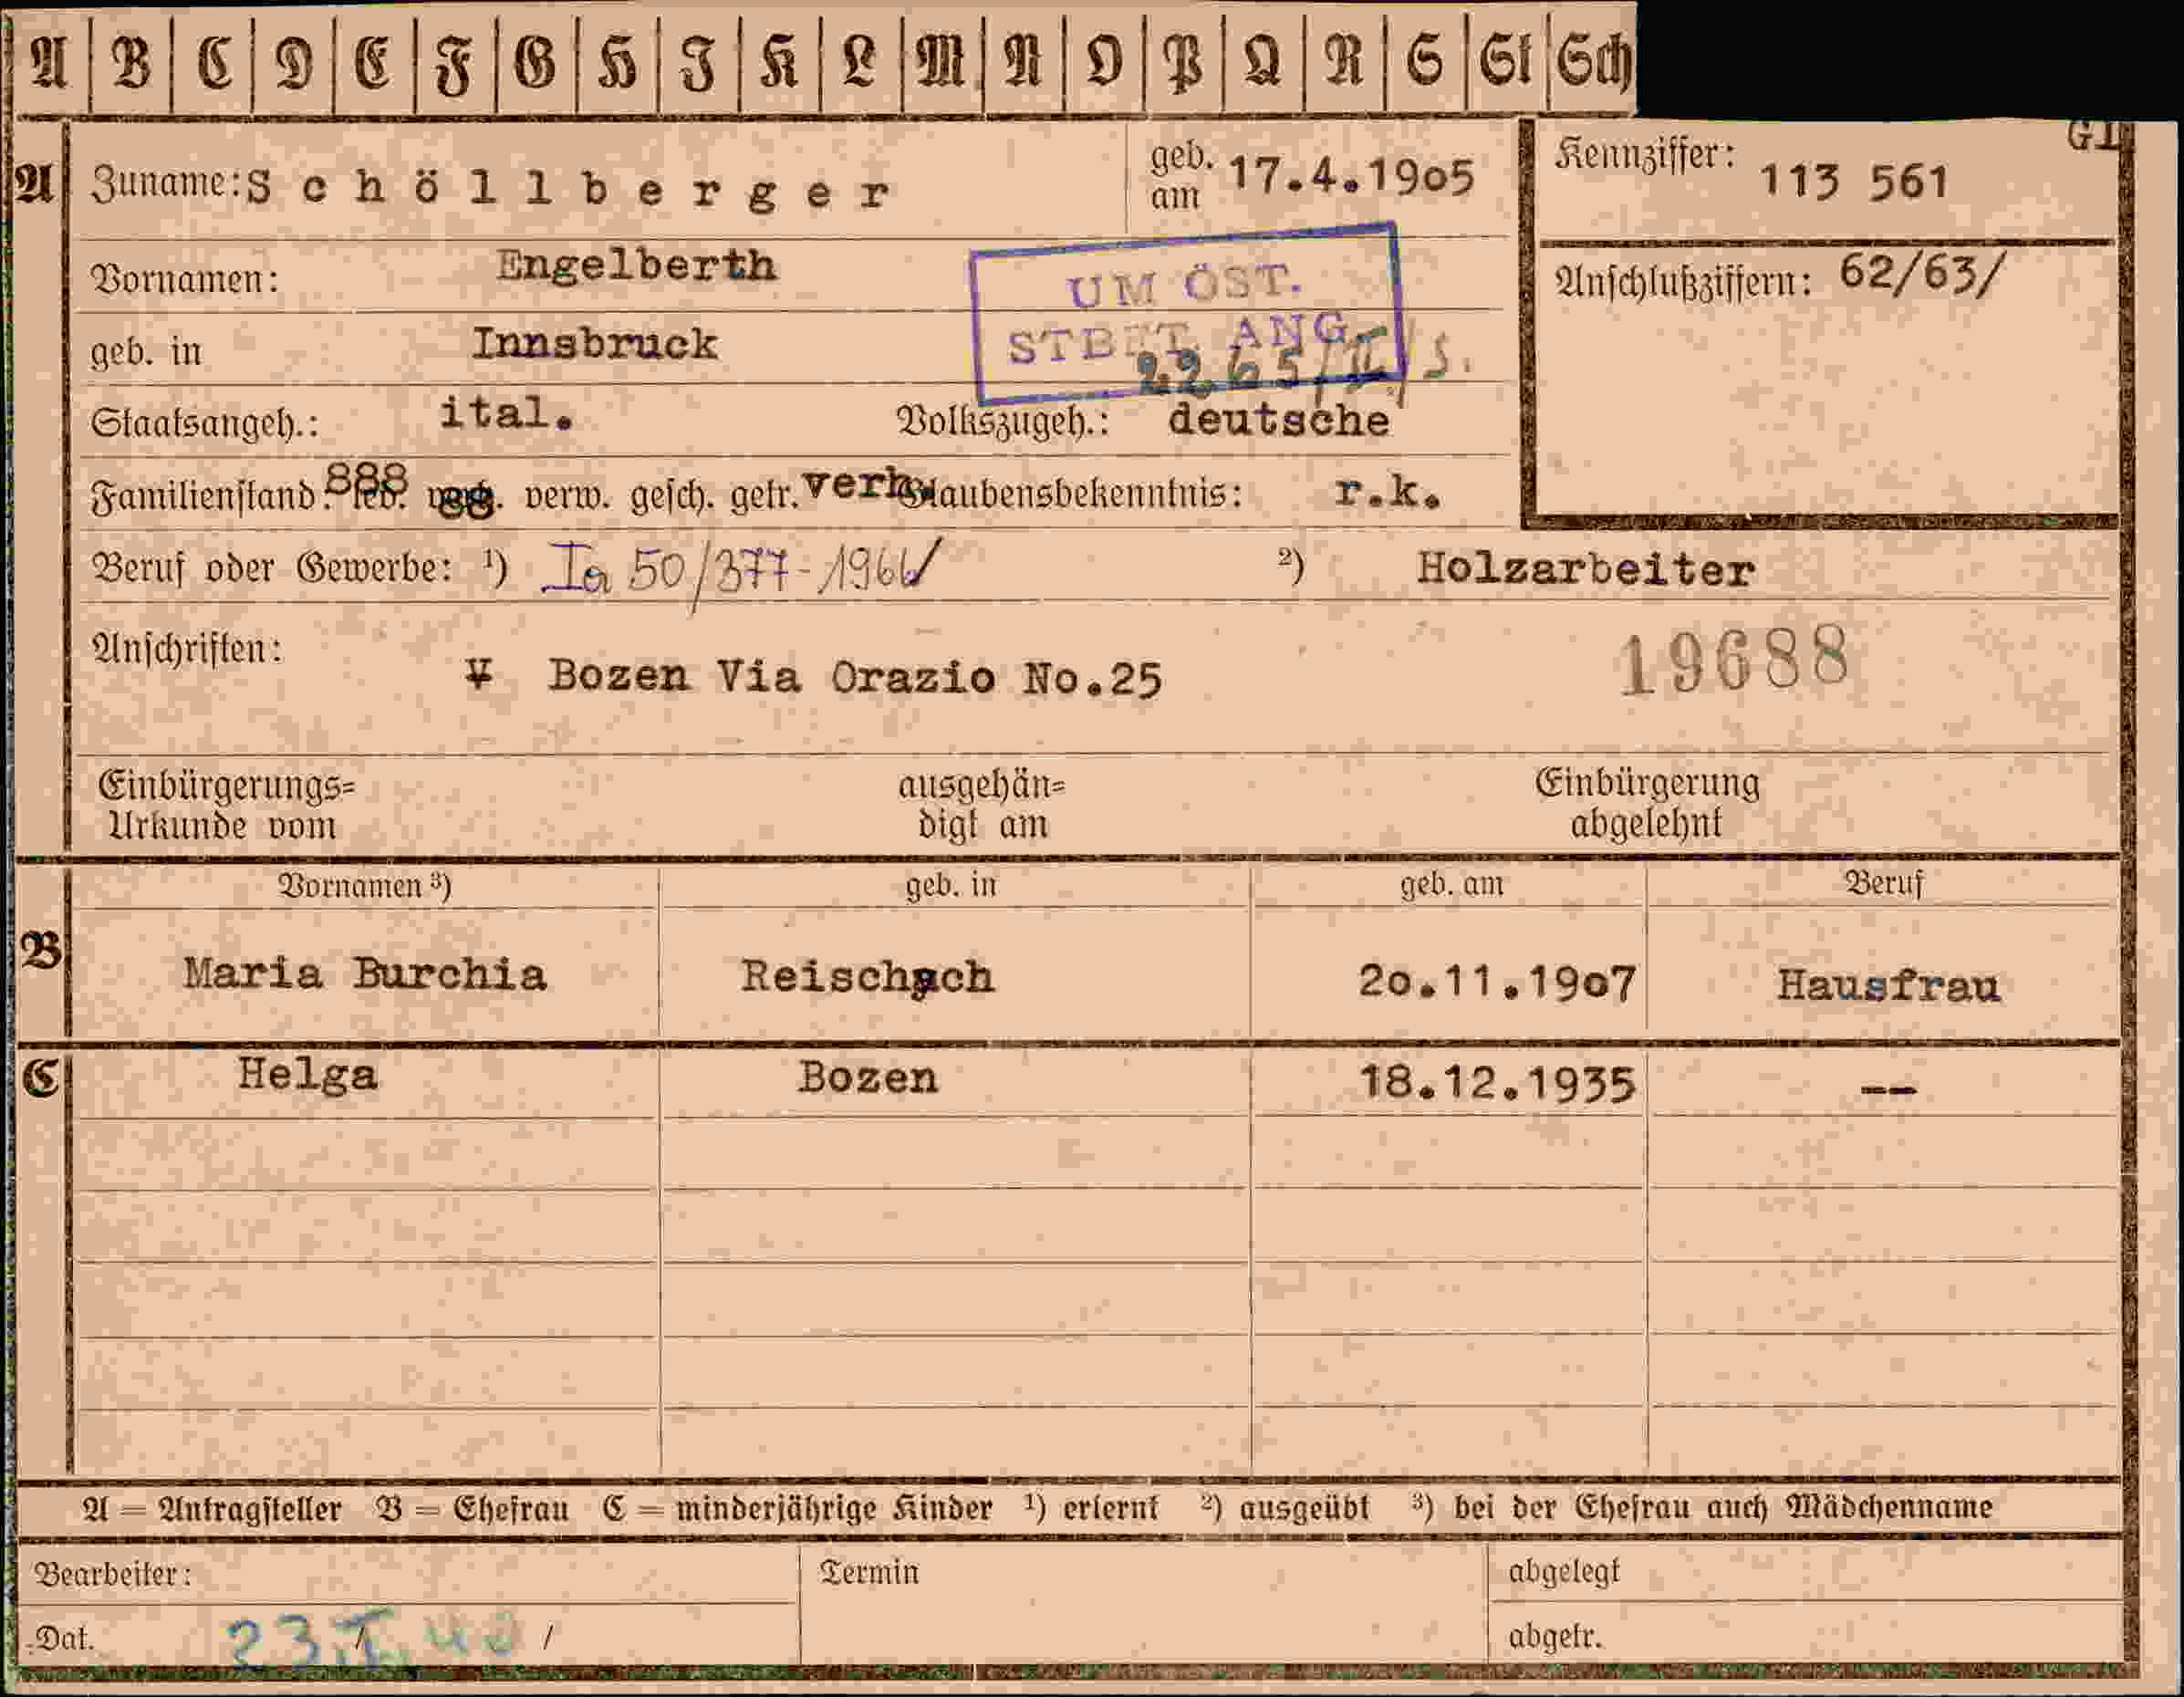 A B C D E F G H I K L M N O P Q R S St Sch
A Zuname: Schöllberger geb. am 17.4.1905 Kennziffer: 113 561
Vornamen: Engelberth
UM ÖST.
STBET. ANG.
Anschlußziffern: 62/63/
geb. in Innsbruck 2265/II/S.
Staatsangeh.: ital. Volkszugeh.: deutsche
Familienstand: led. verw. gesch. getr. verh. Glaubensbekenntnis: r.k.
Beruf oder Gewerbe: ¹) Ia 50/377-1966 ²) Holzarbeiter
Anschriften: Bozen Via Orazio No.25 19688
Einbürgerungs= ausgehän= Einbürgerung
Urkunde vom digt am abgelehnt
Vornamen ³) geb. in geb. am Beruf
B Maria Burchia Reischach 20.11.1907 Hausfrau
C Helga Bozen 18.12.1935 --
A = Antragsteller B = Ehefrau C = minderjährige Kinder ¹) erlernt ²) ausgeübt ³) bei der Ehefrau auch Mädchenname
Bearbeiter: Termin abgelegt
Dat. 23.I.40 / abgetr.